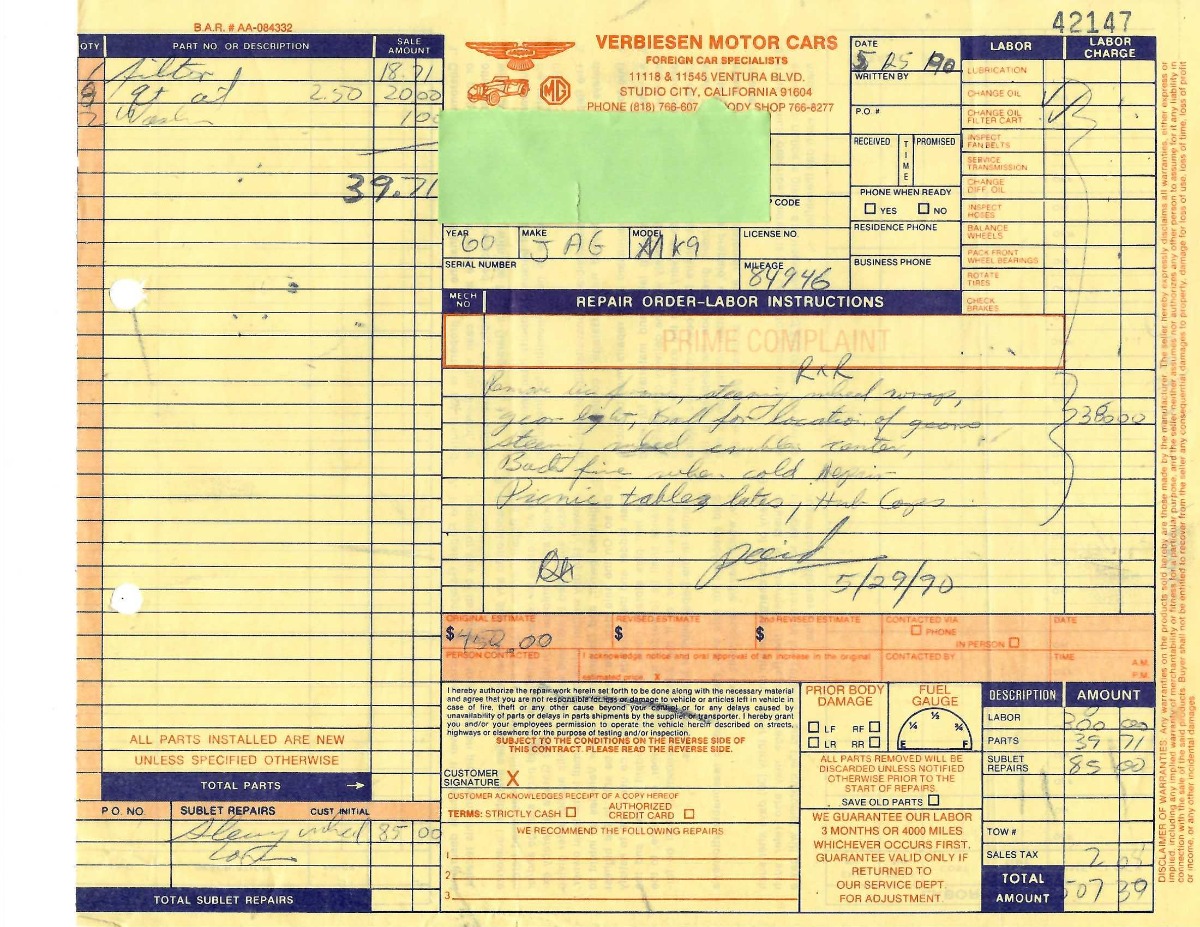 42147
B.A.R. # AA-084332
QTY PART NO. OR DESCRIPTION SALE AMOUNT
1 filter 18.71
8 qt oil 2.50 20 00
2 1 00
39.71
ALL PARTS INSTALLED ARE NEW
UNLESS SPECIFIED OTHERWISE
TOTAL PARTS
P.O. NO. SUBLET REPAIRS CUST. INITIAL
wheel 85 00
TOTAL SUBLET REPAIRS
VERBIESEN MOTOR CARS
FOREIGN CAR SPECIALISTS
11118 & 11545 VENTURA BLVD.
STUDIO CITY, CALIFORNIA 91604
PHONE (818) 766-607 BODY SHOP 766-8277
MG
P CODE
YEAR 60 MAKE JAG MODEL MK9 LICENSE NO.
SERIAL NUMBER MILEAGE 84946
DATE 5 25 90
WRITTEN BY
P.O. #
RECEIVED TIME PROMISED
PHONE WHEN READY
YES NO
RESIDENCE PHONE
BUSINESS PHONE
LABOR LABOR CHARGE
LUBRICATION
CHANGE OIL
CHANGE OIL FILTER CART.
INSPECT FAN BELTS
SERVICE TRANSMISSION
CHANGE DIFF. OIL
INSPECT HOSES
BALANCE WHEELS
PACK FRONT WHEEL BEARINGS
ROTATE TIRES
CHECK BRAKES
MECH NO REPAIR ORDER-LABOR INSTRUCTIONS
PRIME COMPLAINT
R&R
steering wheel wrap,
gear light, Ball for location of gears
steering wheel emblem center,
Back fire when cold
Picnic tables lates, Hub Caps
380 00
paid
5/29/90
ORIGINAL ESTIMATE REVISED ESTIMATE 2nd REVISED ESTIMATE CONTACTED VIA DATE
$ 450.00 $ $ PHONE
IN PERSON
PERSON CONTACTED I acknowledge notice and oral approval of an increase in the original estimated price. X CONTACTED BY TIME A.M. P.M.
I hereby authorize the repair work herein set forth to be done along with the necessary material
and agree that you are not responsible for loss or damage to vehicle or articles left in vehicle in
case of fire, theft or any other cause beyond your control or for any delays caused by
unavailability of parts or delays in parts shipments by the supplier or transporter. I hereby grant
you and/or your employees permission to operate the vehicle herein described on streets,
highways or elsewhere for the purpose of testing and/or inspection.
SUBJECT TO THE CONDITIONS ON THE REVERSE SIDE OF
THIS CONTRACT. PLEASE READ THE REVERSE SIDE.
CUSTOMER SIGNATURE X
CUSTOMER ACKNOWLEDGES RECEIPT OF A COPY HEREOF
TERMS: STRICTLY CASH AUTHORIZED CREDIT CARD
WE RECOMMEND THE FOLLOWING REPAIRS
1
2
3
PRIOR BODY DAMAGE
LF RF
LR RR
FUEL GAUGE
E ¼ ½ ¾ F
ALL PARTS REMOVED WILL BE
DISCARDED UNLESS NOTIFIED
OTHERWISE PRIOR TO THE
START OF REPAIRS.
SAVE OLD PARTS
WE GUARANTEE OUR LABOR
3 MONTHS OR 4000 MILES
WHICHEVER OCCURS FIRST.
GUARANTEE VALID ONLY IF
RETURNED TO
OUR SERVICE DEPT.
FOR ADJUSTMENT.
DESCRIPTION AMOUNT
LABOR 00
PARTS 39 71
SUBLET REPAIRS 85 00
TOW #
SALES TAX 2 68
TOTAL AMOUNT 507 39
DISCLAIMER OF WARRANTIES. Any warranties on the products sold hereby are those made by the manufacturer. The seller hereby expressly disclaims all warranties, either express or
implied, including any implied warranty of merchantability or fitness for a particular purpose, and the seller neither assumes nor authorizes any other person to assume for it any liability in
connection with the sale of the said products. Buyer shall not be entitled to recover from the seller any consequential damages to property, damage for loss of use, loss of time, loss of profit
or income, or any other incidental damages